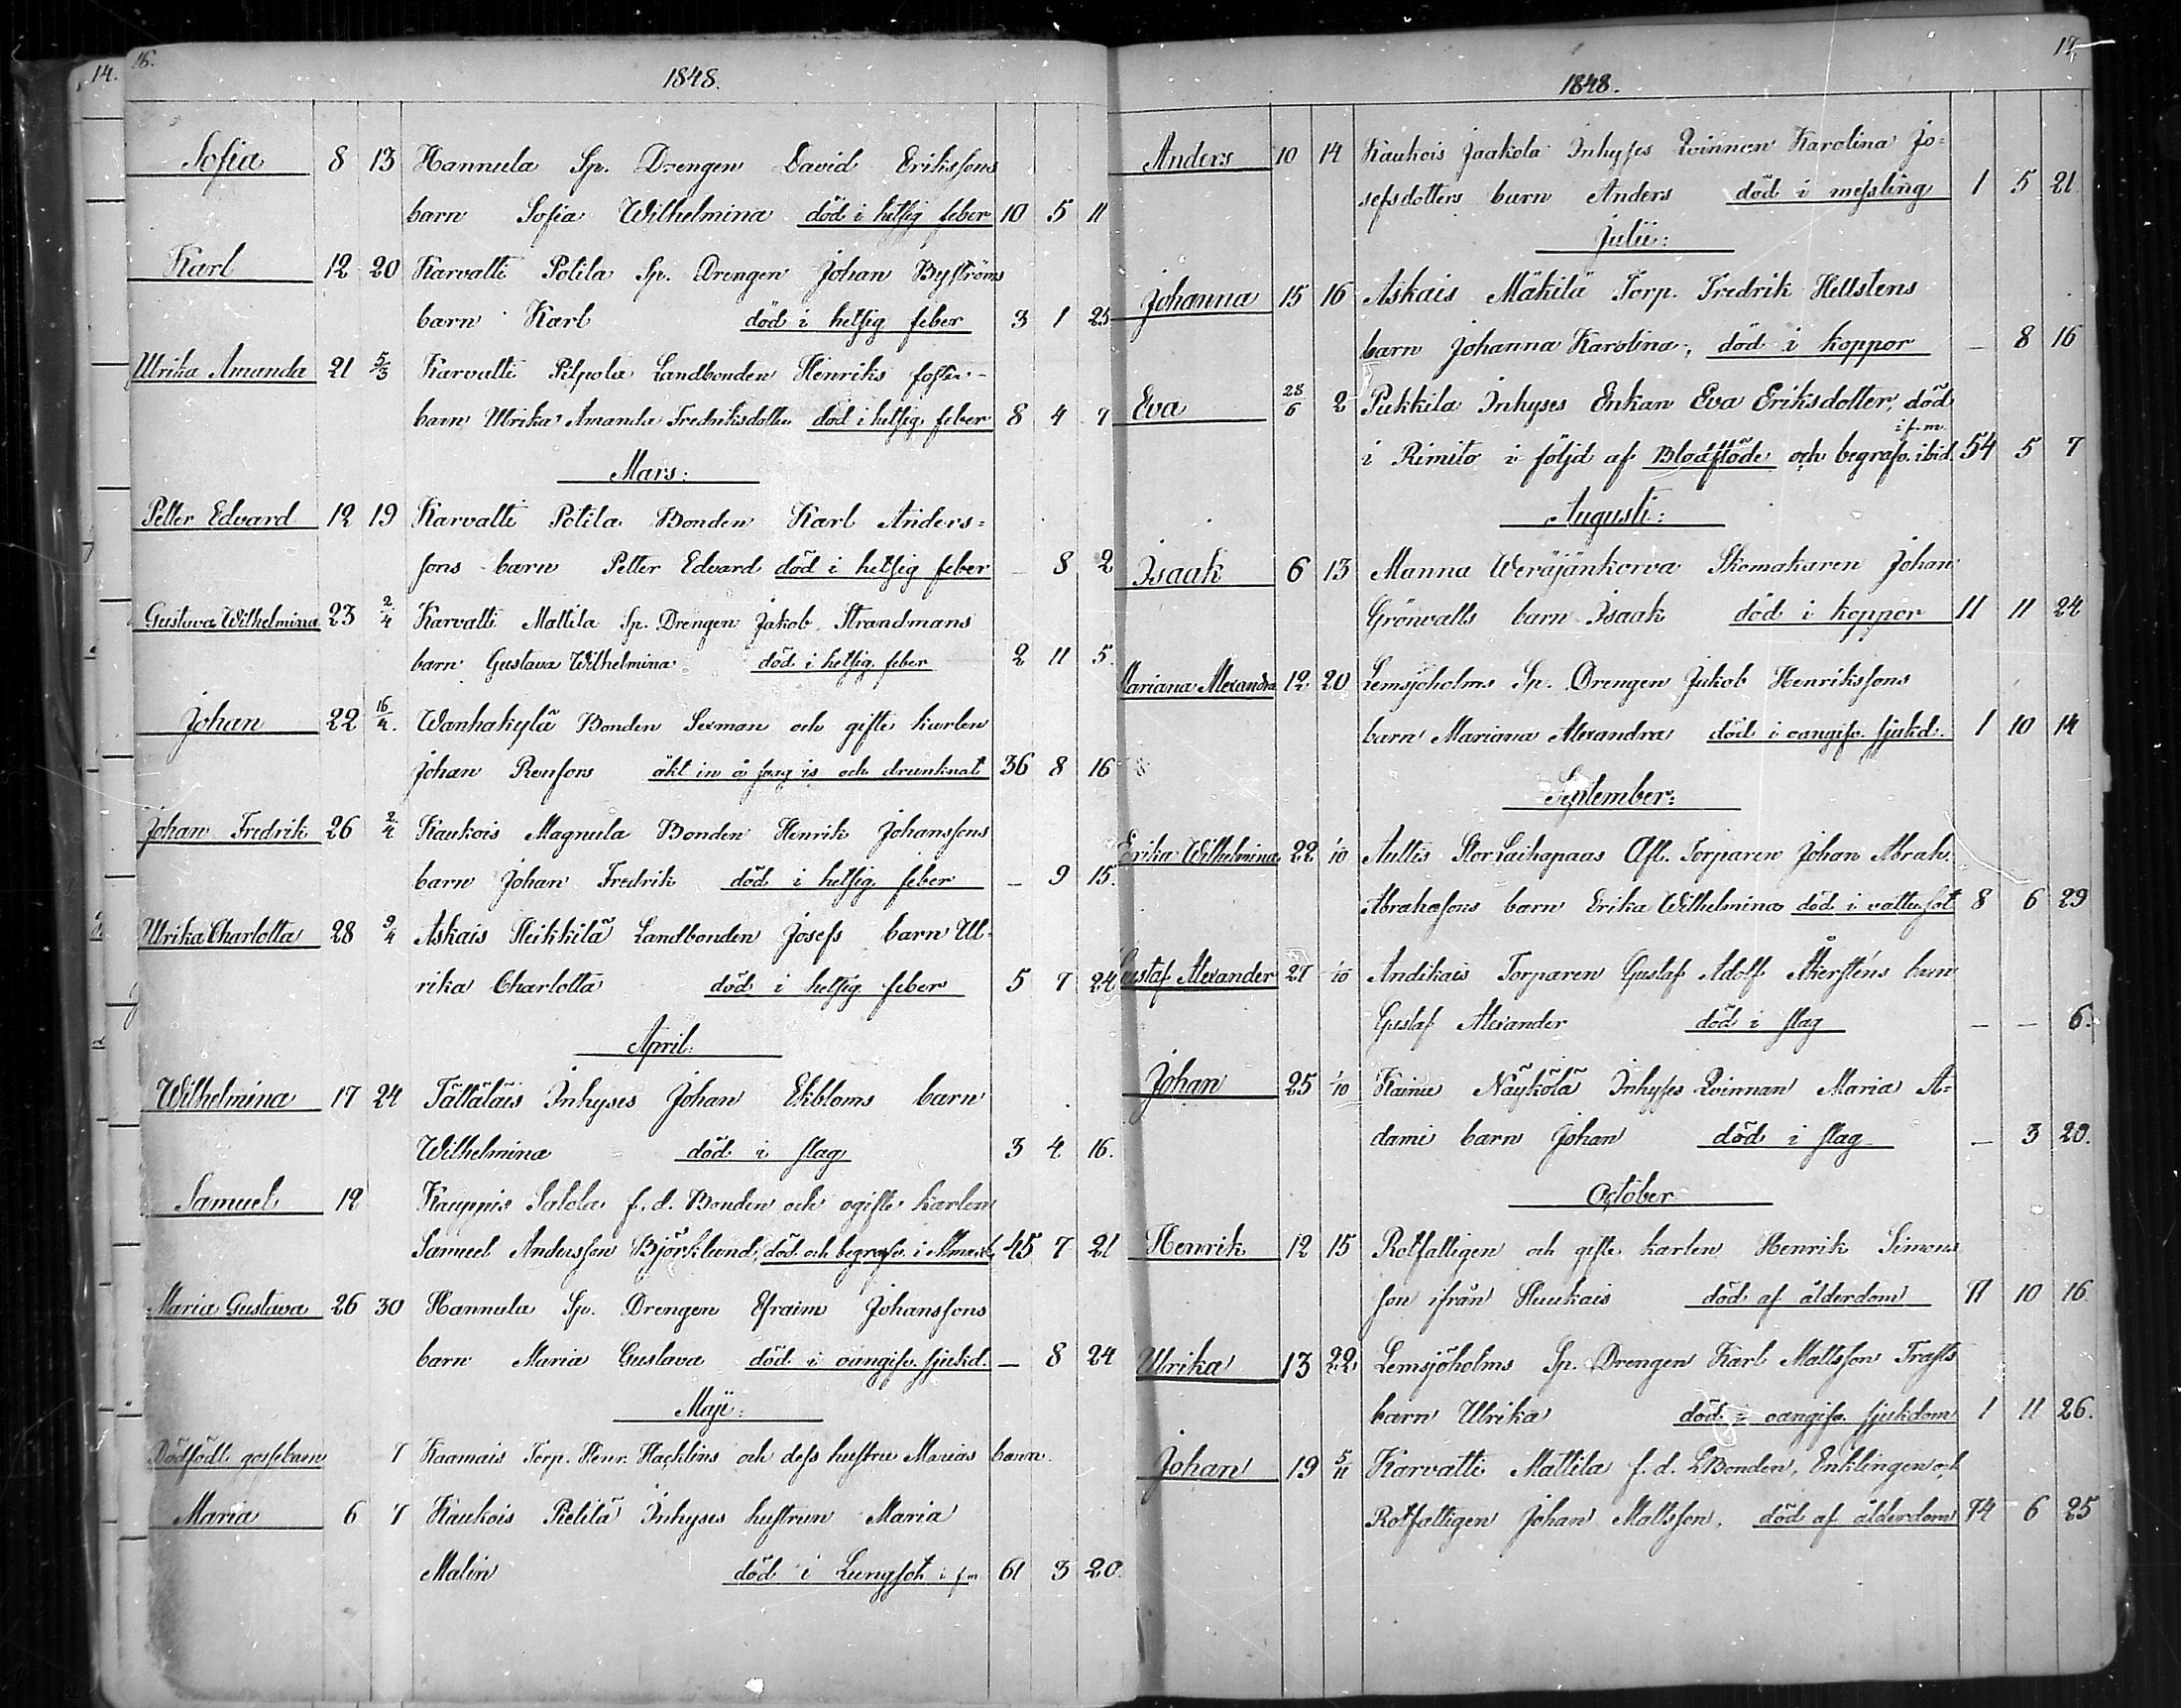 14.
16.
1848.
Sofia 8 13 Hannula Sp. Drengen David Erikssons
barn Sofia Wilhelmina död i hetsig feber 10 5 11
Karl 12 20 Karvatti Potila Sp. Drengen Johan Byströms
barn Karl död i hetsig feber 3 1 25
Ulrika Amanda 21 5/3 Karvatti Pilpola Landbonden Henriks foster-
barn Ulrika Amanda Fredriksdotter död i hetsig feber 8 4 7
Mars:
Petter Edvard 12 19 Karvatti Potila Bonden Karl Anders=
sons barn Petter Edvard död i hetsig feber – 8 2
Gustava Wilhelmina 23 2/4 Karvatti Mattila Sp. Drengen Jakob Strandmans
barn Gustava Wilhelmina död i hetsig feber 2 11 5.
Johan 22 16/4. Wanhakylä Bonden Sexman och gifte karlen
Johan Renfors åkt in å svag is och drunknat 36 8 16
Johan Fredrik 26 2/4 Kaukois Magnula Bonden Henrik Johanssons
barn Johan Fredrik död i hetsig feber – 9 15.
Ulrika Charlotta 28 9/4 Askais Heikkilä Landbonden Josefs barn Ul-
rika Charlotta död i hetsig feber 5 7 24
April:
Wilhelmina 17 24 Tättäläis Inhyses Johan Ekbloms barn
Wilhelmina död i slag 3 4 16.
Samuel 12 Kauppis Salola f.d. Bonden och ogifte karlen
Samuel Andersson Björklund, död och begrafv. i 45 7 21
Maria Gustava 26 30 Hannula Sp. Drengen Efraim Johanssons
barn Maria Gustava död i oangifv. sjukd. – 8 24
Maji:
Dödfödt gossebarn 7 Kaamais Torp. Henr. Hacklins och dess hustru Marias barn.
Maria 6 7 Kaukois Pietilä Inhyses hustrun Maria
Malin död i Lungsot i f.m 61 3 20.
17.
1848.
Anders 10 14 Kaukois Jaakola Inhyses Qvinnan Karolina Jo=
sefsdotters barn Anders död i messling 1 5 21.
Julii:
Johanna 15 16 Askais Mäkilä Torp. Fredrik Hellstens
barn Johanna Karolina, död i koppor – 8 16
Eva 28/6 2 Pukkila Inhyses Enkan Eva Eriksdotter, död
i f.m.
i Rimito i följd af Blodflöde och begrafv. ibid. 54 5 7
Augusti:
Isaak 6 13 Mannu Weräjänkorva Skomakaren Johan
Grönvalls barn Isaak död i koppor 11 11 24
Mariana Alexandra 12 20 Lemsjöholms Sp. Drengen Jakob Henrikssons
barn Mariana Alexandra död i oangifv. sjukd. 1 10 14
September:
Erika Wilhelmina 22 1/10 Aultis StorLaihapaas Afl. Torparen Johan Abrah.
Abrahassons barn Erika Wilhelmina död i vattusot 8 6 29
Gustaf Alexander 27 1/10 Andikais Torparen Gustaf Adolf Åkersténs barn
Gustaf Alexander död i slag – – 6.
Johan 25 1/10 Kainu Näykölä Inhyses Qvinnan Maria A=
dami barn Johan död i slag – 3 20.
October
Henrik 12 15 Rotfattigen och gifte karlen Henrik Simons
son ifrån Huukais död af ålderdom 71 10 16.
Ulrika 13 22 Lemsjöholms Sp. Drengen Karl Mattsson Trasts
barn Ulrika död i oangifv. sjukdom 1 11 26.
Johan 19 5/11 Karvatti Mattila f.d. LBonden, Enklingen och
Rotfattigen Johan Mattsson. död af ålderdom 74 6 25